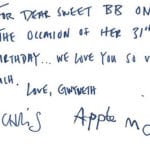 FOR DEAR SWEET BB ON
THE OCCASION OF HER 31st
BIRTHDAY... WE LOVE YOU SO V
LOVE, GWYNETH
CHRIS APPLE MO